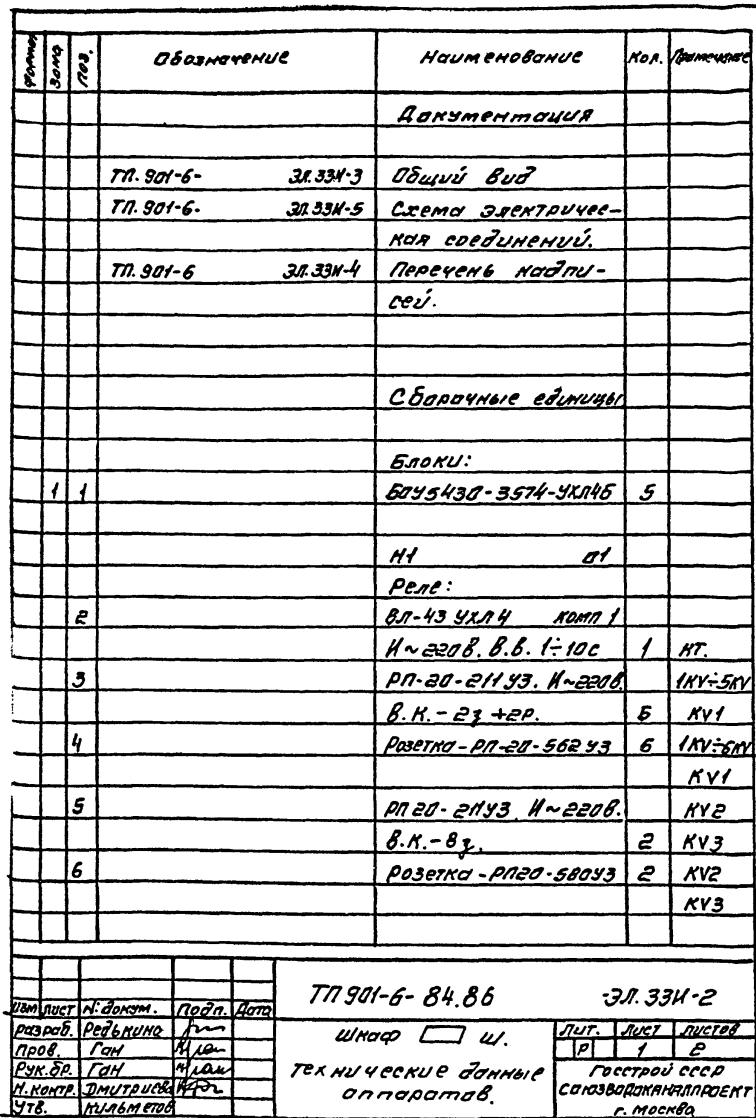 Формат Зона Поз. Обозначение Наименование Кол. Примечание
Документация
ТП. 901-6- ЭЛ.33И-3 Общий вид
ТП. 901-6- ЭЛ.33И-5 Схема электричес-
кая соединений.
ТП. 901-6 ЭЛ.33И-4 Перечень надпи-
сей.
Сборочные единицы
Блоки:
1 1 БОУ5430-3574-УХЛ4Б 5
Н1 01
Реле:
2 ВЛ-43 УХЛ4 комп 1
И~220В. В.В. 1÷10с 1 КТ.
3 РП-20-211 У3. И~220В. 1KV÷5KV
В.К.-2з +2р. 6 KV1
4 Розетка-РП-20-562 У3 6 1KV÷5KV
KV1
5 РП20-211У3 И~220В. KV2
В.К.-8з. 2 KV3
6 Розетка-РП20-580У3 2 KV2
KV3
ТП 901-6-84.86 ЭЛ.33И-2
Изм Лист № докум. Подп. Дата
Разраб. Редькина
Пров. Ган
Рук.бр. Ган
Н.контр. Дмитриева
Утв. Кильметов
Шкаф Ш.
Технические данные
аппаратов.
Лит. Лист Листов
Р 1 2
Госстрой СССР
Союзводоканалпроект
г. Москва